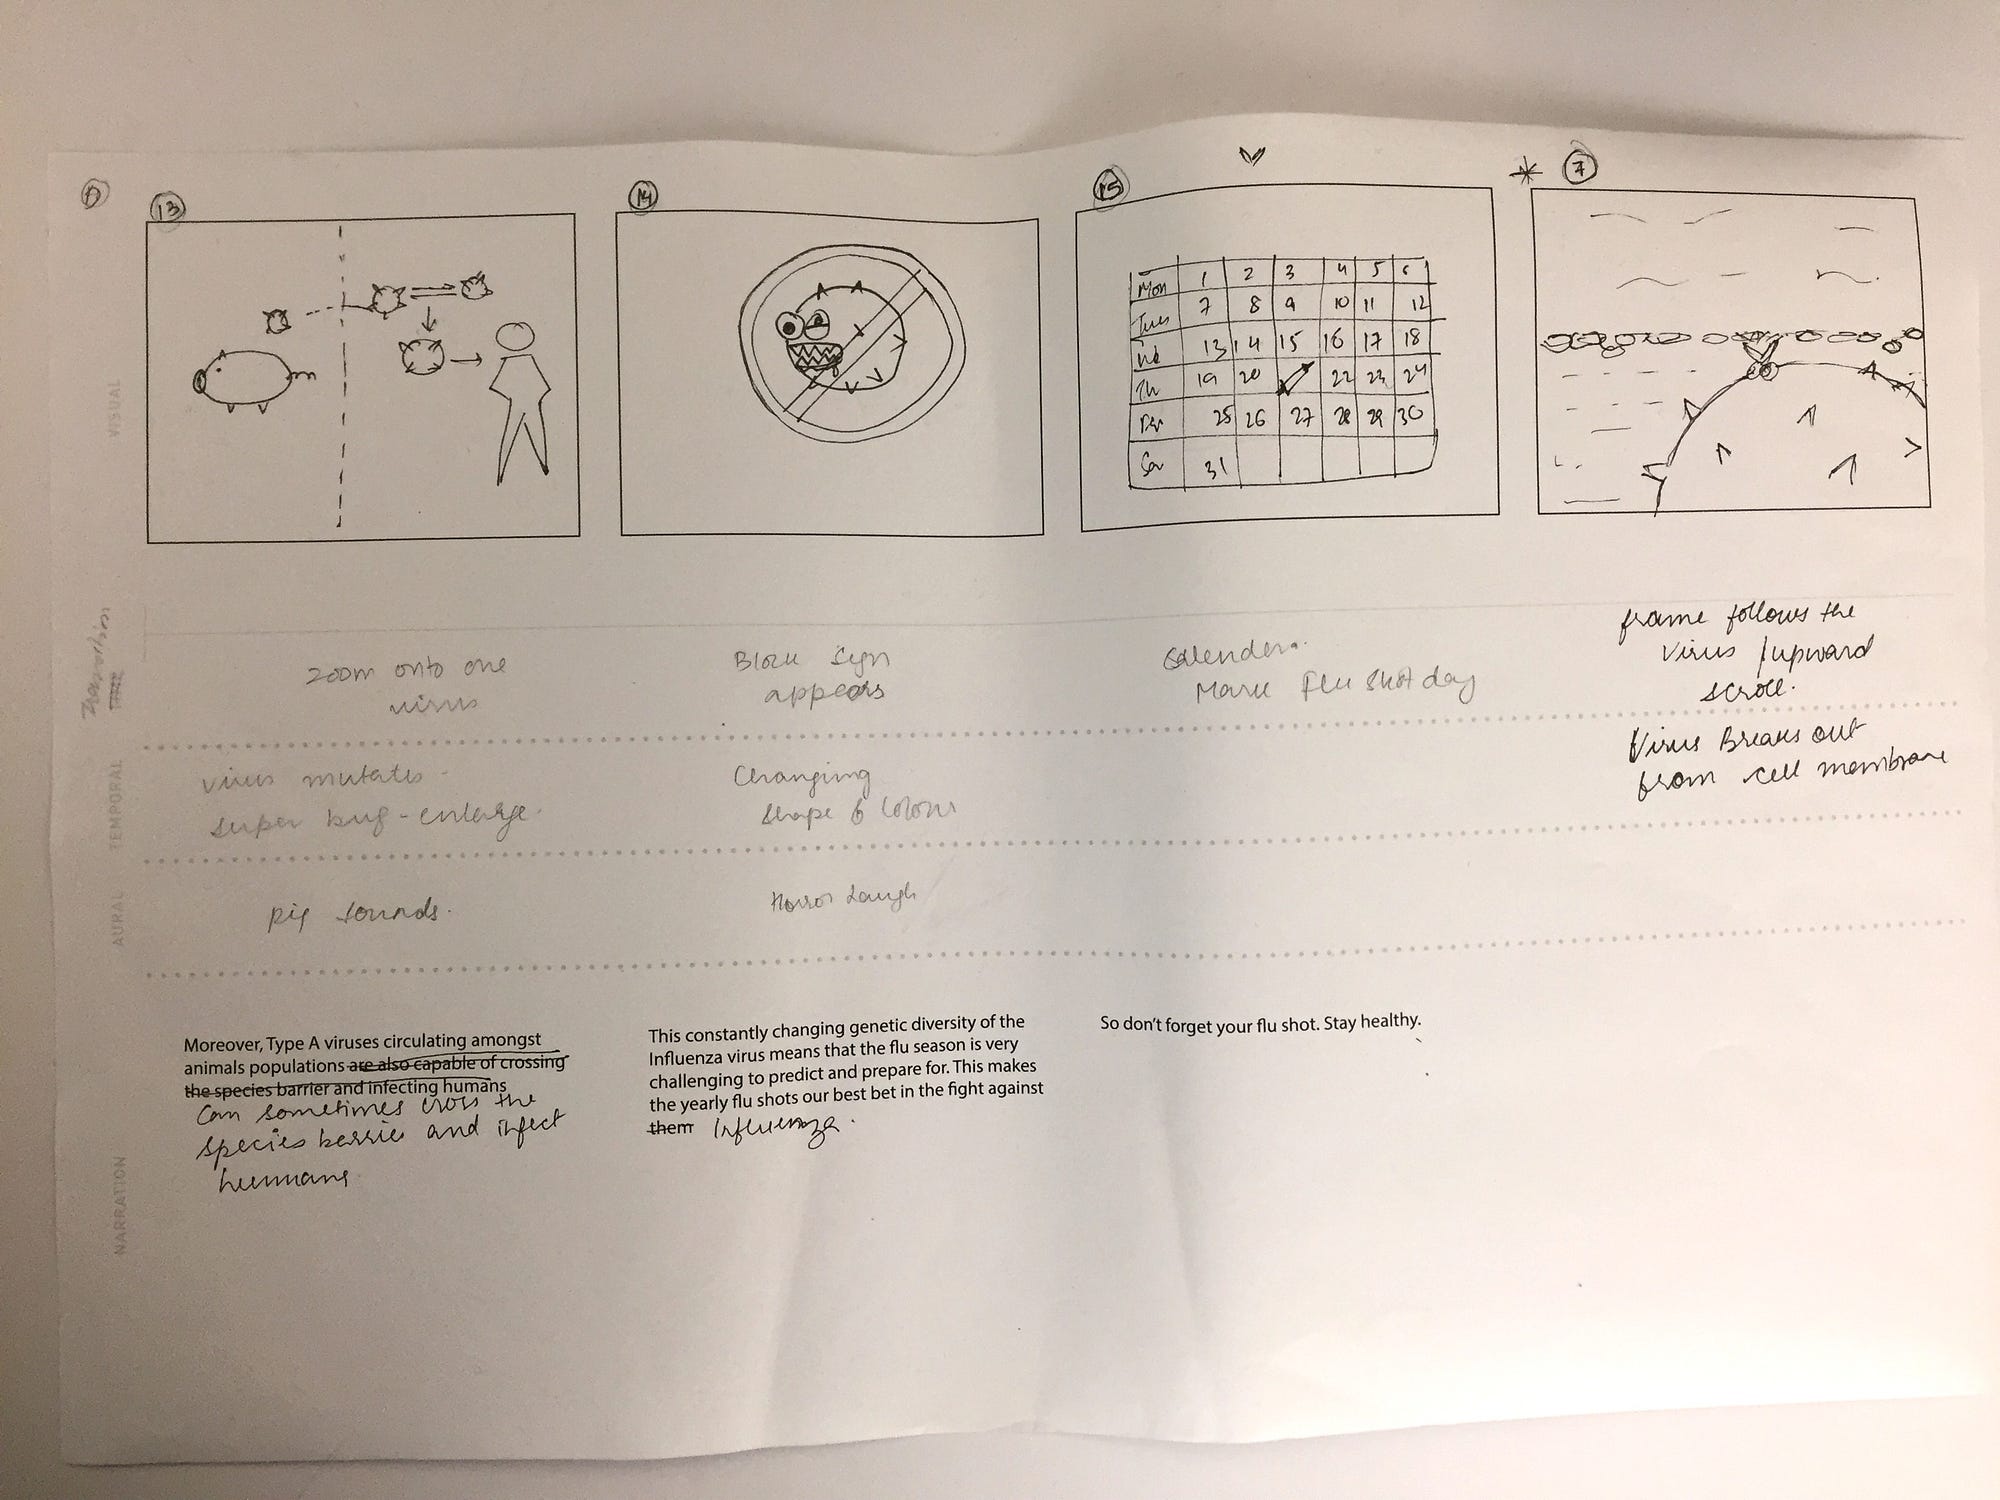 13
14
15
7
Mon 1 2 3 4 5 6
Tues 7 8 9 10 11 12
13 14 15 16 17 18
Th 19 20 22 23 24
25 26 27 28 29 30
31
VISUAL
Zoom onto one
virus
Block Sign
appears
Calender.
Mark Flu Shot day
frame follows the
virus / upward
scroll.
TEMPORAL
virus mutates -
super bug - enlarge.
Changing
shape & colour
Virus Breaks out
from cell membrane
AURAL
pig sounds.
Horror Laugh
NARRATION
Moreover, Type A viruses circulating amongst
animals populations are also capable of crossing
the species barrier and infecting humans
Can sometimes cross the
species berrier and infect
humans
This constantly changing genetic diversity of the
Influenza virus means that the flu season is very
challenging to predict and prepare for. This makes
the yearly flu shots our best bet in the fight against
them Influenza.
So don't forget your flu shot. Stay healthy.